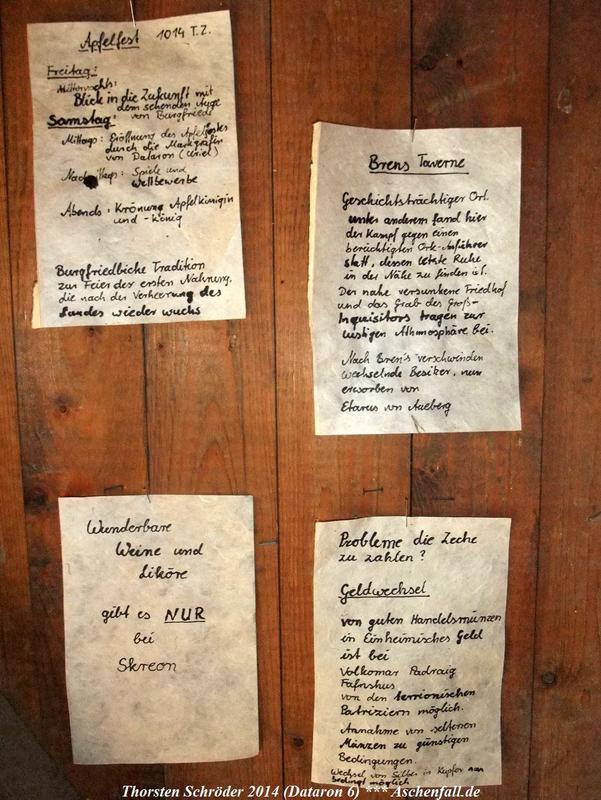 Apfelfest 1014 T.Z.
Freitag:
Mitternachts:
Blick in die Zukunft mit
dem sehenden Auge
von Burgfriede
Samstag:
Mittags: Eröffnung des Apfelfestes
durch die Markgräfin
von Dataron (Uriel)
Nachmittags: Spiele und
Wettbewerbe
Abends: Krönung Apfelkönigin
und -könig
Burgfriedliche Tradition
zur Feier der ersten Nahrung,
die nach der Verheerung des
Landes wieder wuchs
Brens Taverne
Geschichtsträchtiger Ort.
unter anderem fand hier
der Kampf gegen einen
berüchtigten Ork-Anführer
statt, dessen letzte Ruhe
in der Nähe zu finden ist.
Der nahe versunkene Friedhof
und das Grab des Groß-
Inquisitors tragen zur
lustigen Athmosphäre bei.
Nach Bren's verschwinden
wechselnde Besitzer, nun
erworben von
Etarus von Aueberg
Wunderbare
Weine und
Liköre
gibt es NUR
bei
Skreon
Probleme die Zeche
zu zahlen?
Geldwechsel
von guten Handelsmünzen
in Einheimisches Geld
ist bei
Volkomar Padraig
Fafnshus
von den terrionischen
Patriziern möglich.
Annahme von seltenen
Münzen zu günstigen
Bedingungen.
Wechsel von Silber in Kupfer nur
bedingt möglich
Thorsten Schröder 2014 (Dataron 6) *** Aschenfall.de